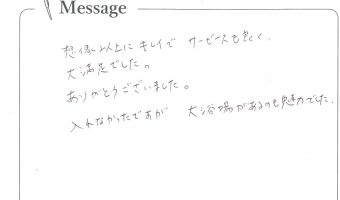 Message
想像以上に キレイで サービスも良く、
大満足でした。
ありがとうございました。
入れなかったですが 大浴場があるのも魅力でした。